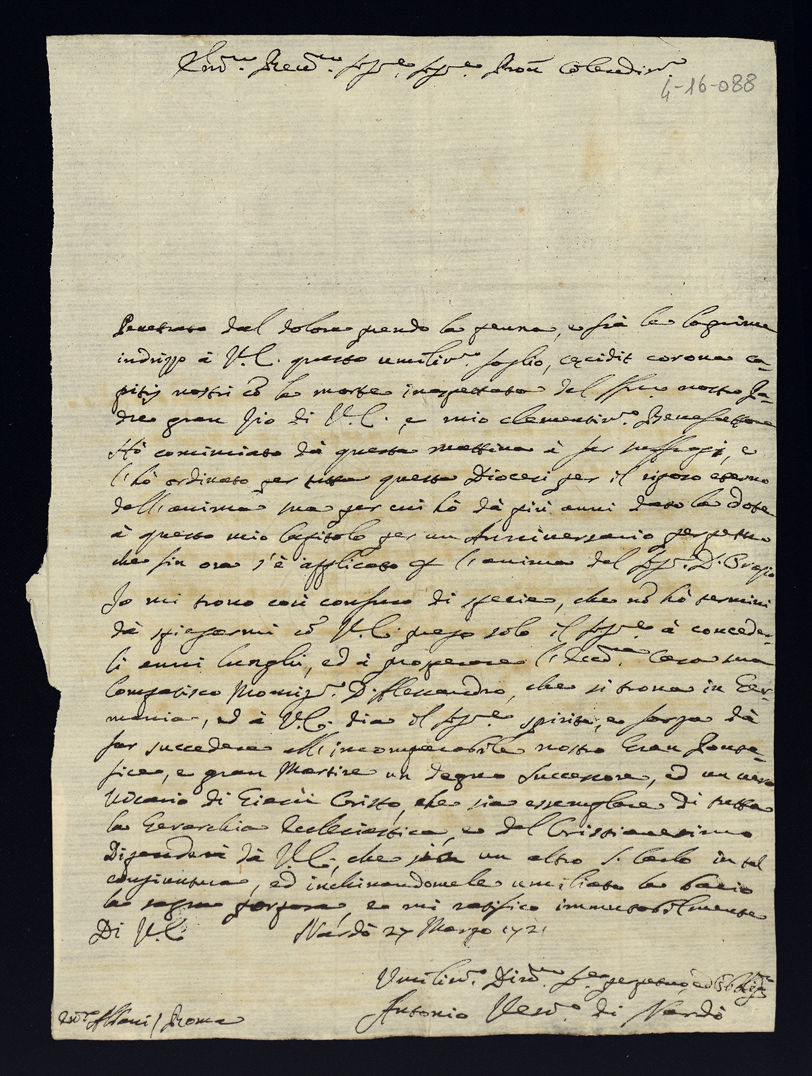 Em.mo Rev.mo Sig.re Sig.re Pron Colendis.mo
4-16-088
Penetrato dal dolore prendo la penna, e frà le lagrime
indrizzo à V.E. questo umiliss.o foglio, cęcidit corona ca-
pitis nostri cō la morte inaspettata del nostro Pa-
dre gran Zio di V.E., e mio clementiss.o Benefattore
Hò cominciato dà questa mattina à far suffragi, e
l'hò ordinato per tutta questa Diocesi per il riposo eterno
dell'anima sua per cui hò dà più anni dato la dote
à questo mio Capitolo per un Anniversario perpetuo
che fin ora s'è applicato l'anima del Sig.r D. Orazio
Io mi trovo così confuso di specie, che nō hò termini
dà spiegarmi cō V.E. prego solo il Sig.re à conceder-
li anni lunghi, ed à prosperare l'Ecc.ma Casa sua
Compatisco Monsig.r D. Alessandro, che si trova in Ger-
mania, ed à V.E. dia il Sig.re spirito, e forza dà
far succedere all'incomparabile nostro Gran Ponte-
fice, e gran Martire un degno Successore, ed un vero
Vicario di Giesù Cristo, che sia essemplare di tutta
la Gerarchia Ecclesiastica, e del Cristianesimo
Dipenderà dà V.E., che sia un altro S. Carlo in tal
congiuntura, ed inchinandomele umiliato le bacio
la sagra porpora, e mi ratifico immutabilmente
Di V.E. Nardò 27 Marzo 1721
Umiliss.o Div.mo S.re perpetuo ed
Antonio Vesc.o di Nardò
Albani / Roma